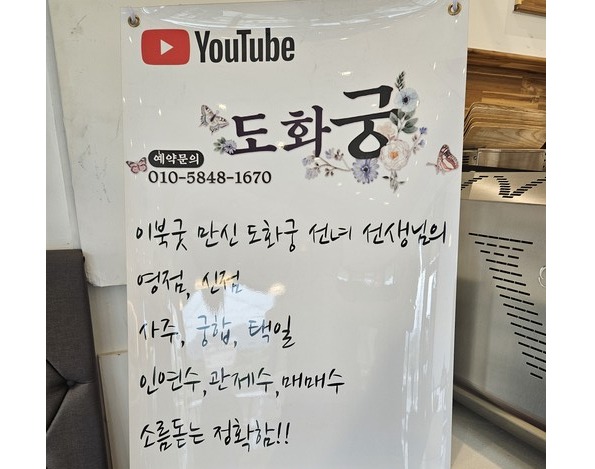 YouTube
도화궁
예약문의
010-5848-1670
이북굿 만신 도화궁 선녀 선생님의
영점, 신점
사주, 궁합, 택일
인연수,관제수,매매수
소름돋는 정확함!!